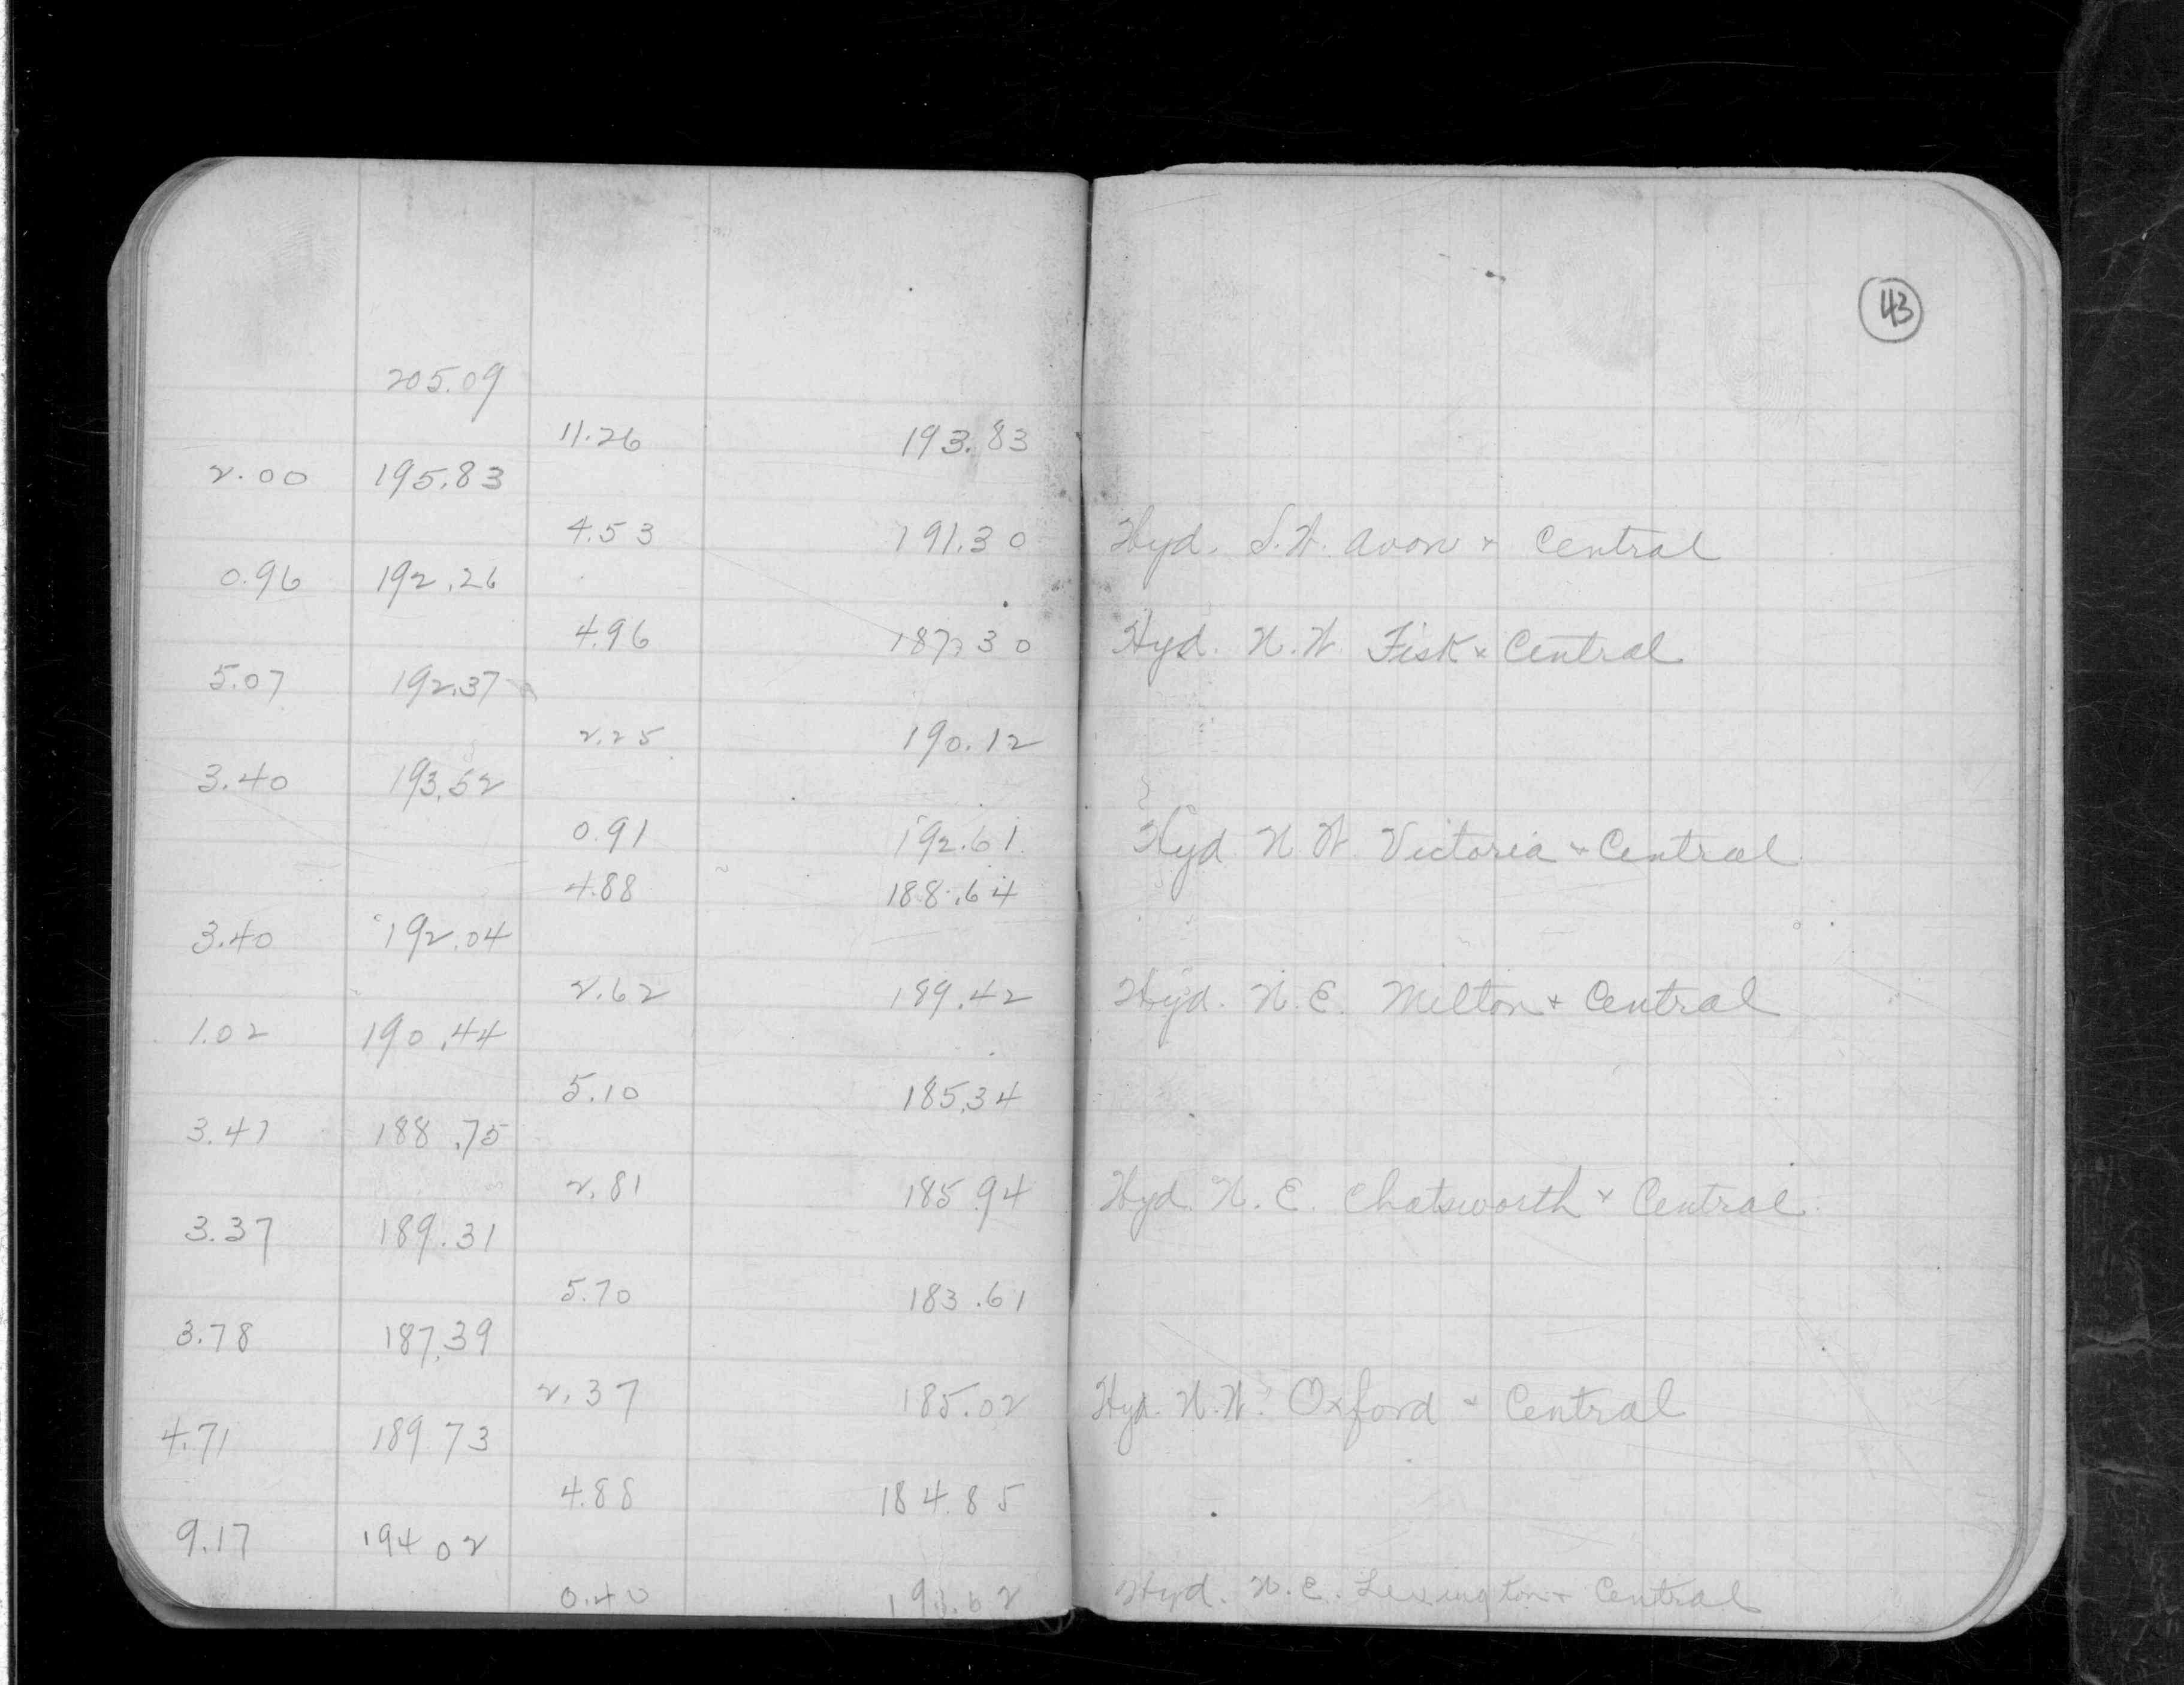 43
205.09
11.26 193.83
2.00 195.83
4.53 191.30 Hyd. S.W. Avon & Central
0.96 192.26
4.96 187.30 Hyd. N.W. Fisk & Central
5.07 192.37
2.25 190.12
3.40 193.52
0.91 192.61 Hyd N W Victoria & Central
4.88 188.64
3.40 192.04
2.62 189.42 Hyd. N.E. Milton & Central
1.02 190.44
5.10 185.34
3.41 188.75
2.81 185.94 Hyd. N.E. Chatsworth & Central
3.37 189.31
5.70 183.61
3.78 187.39
2.37 185.02 Hyd. N.W. Oxford & Central
4.71 189.73
4.88 184.85
9.17 194 02
0.40 193.62 Hyd. N.E. Lexington & Central